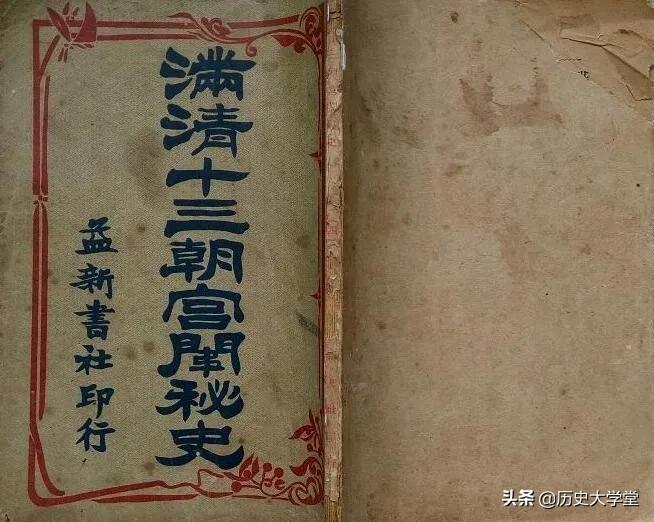 滿清十三朝宮闈秘史
益新書社印行
头条 @历史大学堂